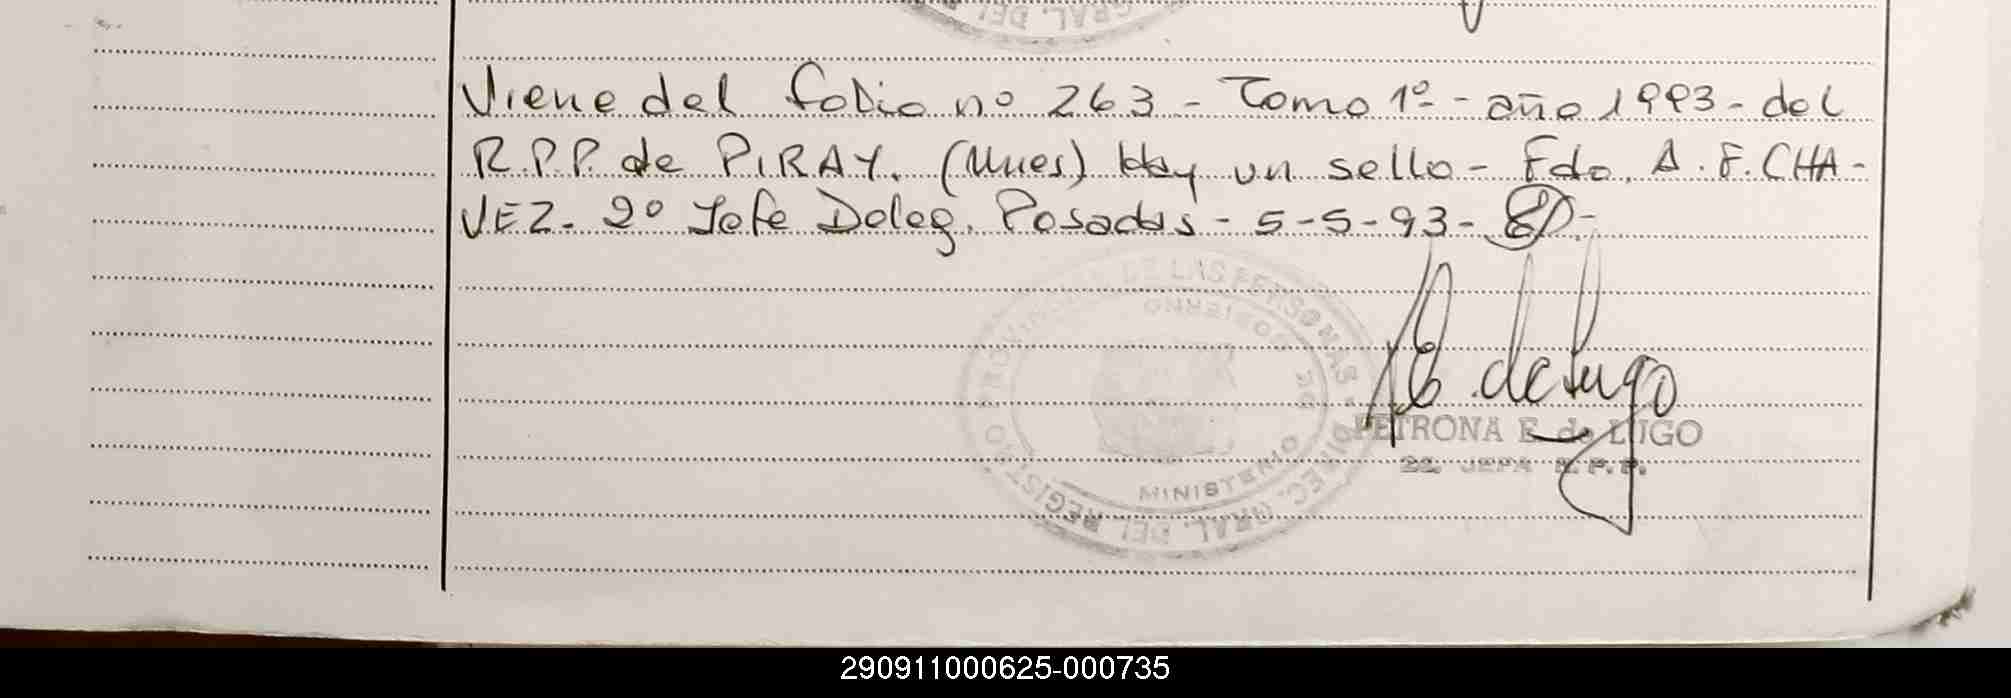 GRAL. DEL
Viene del folio nº 263 - Tomo 1º - año 1993 - del
R.P.P. de PIRAY. (Mnes) Hay un sello - Fdo. A. F. CHA-
VEZ. 2º Jefe Deleg. Posadas - 5-5-93 -
REGISTRO PROVINCIAL DE LAS PERSONAS - DIREC. GRAL. DEL
MINISTERIO DE GOBIERNO
E. de Lugo
PETRONA E. de LUGO
2a. JEFA R. P. P.
290911000625-000735